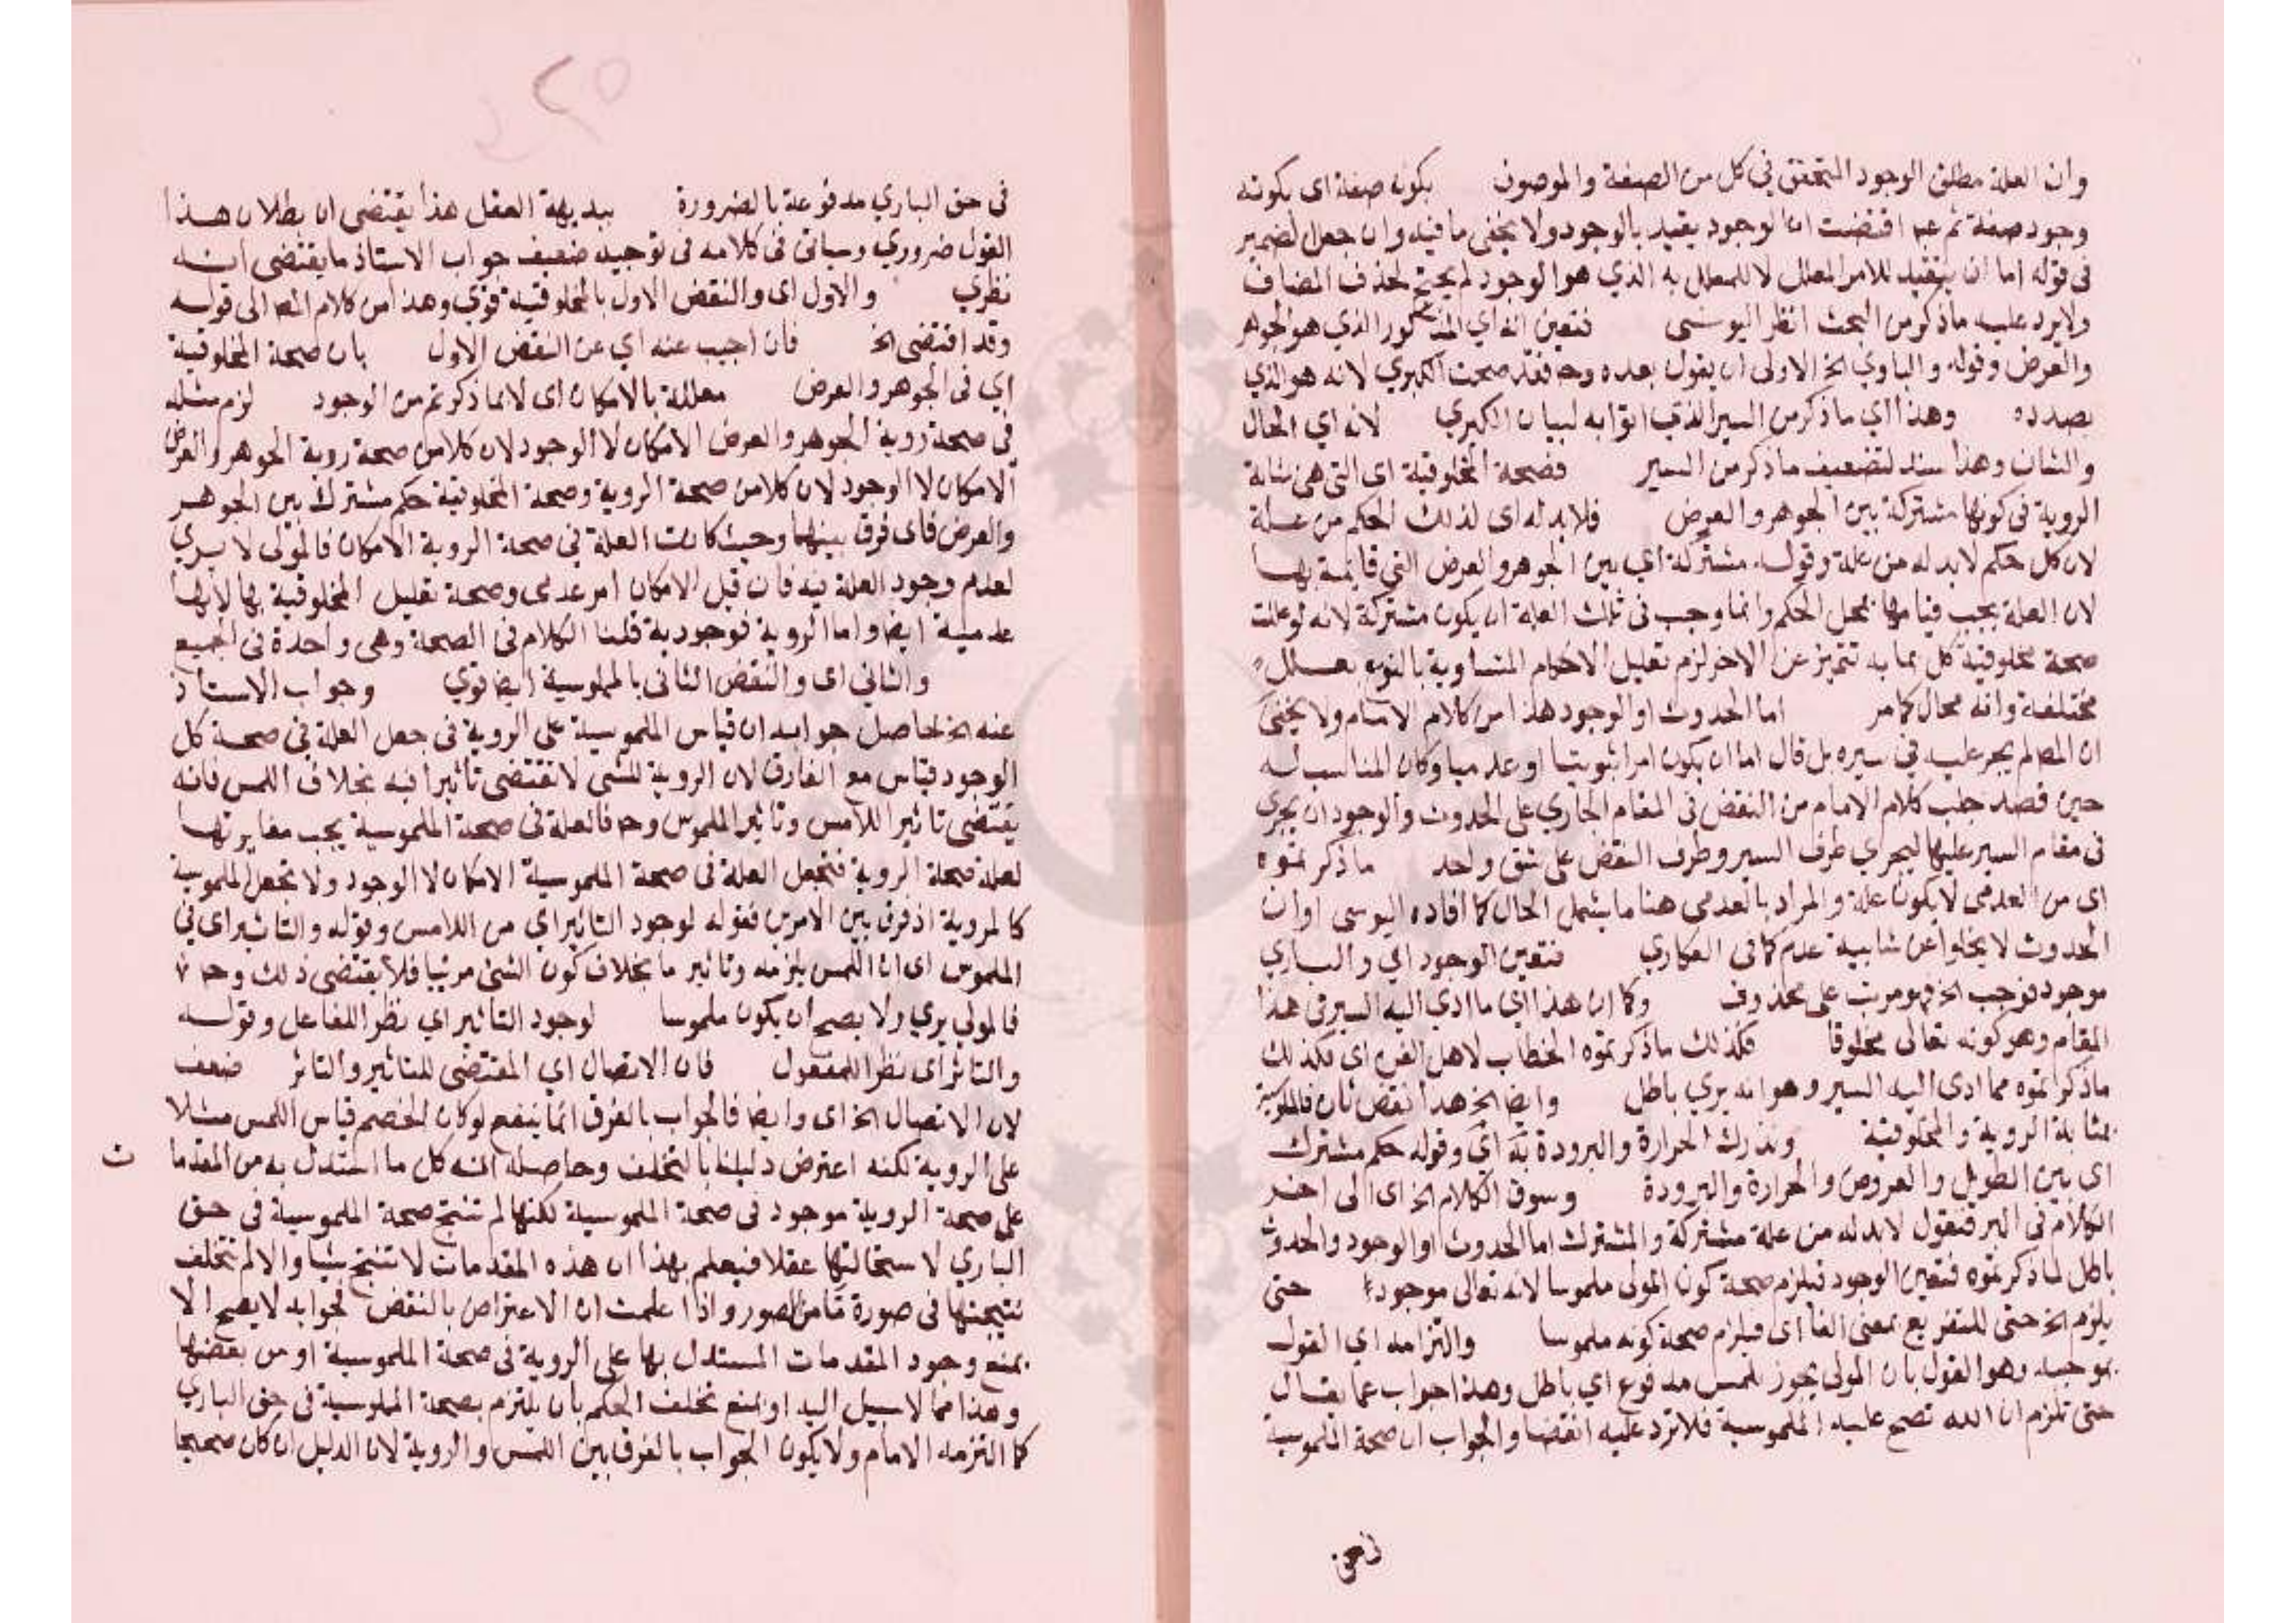 وان العلة مطلق الوجود المتحقق في كل من الصفة والموصوف بكونه صفة اى بكونه
وجود صفة ثم اقتضت ان الوجود يقيد بالوجود ولا يخفى ما فيه وان جعل الضمير
فى قوله اما ان يتقيد للامر المعلل لا للمعلل به الذي هو الوجود لم يحتج لحذف المضاف
ولا يرد عليه ما ذكر من البحث انظر اليوسى فتعين انه اي المذكور الذي هو الجوهر
والعرض وقوله والباري الخ الاولى ان يقول بعده وح فقد صحت الكبري لانه هو الذي
بصدده وهذا اي ما ذكر من السبر الذي اتوا به لبيان الكبري لانه اي الحال
والشان وهذا سند لتضعيف ما ذكر من السبر فصحة المخلوقية اى التى هى بمثابة
الروية فى كونها مشتركة بين الجوهر والعرض فلا بد له اى لذلك الحكم من علة
لان كل حكم لا بد له من علة وقوله مشتركة اي بين الجوهر والعرض التي قايمة بهما
لان العلة يجب قيامها بمحل الحكم وانما وجب فى تلك العلة ان يكون مشتركة لانه لو عللت
صحة مخلوقية كل بما به تتميز عن الاخر لزم تعليل الاحكام المتساوية بالنوع بعلل
مختلفة وانه محال كما مر اما الحدوث او الوجود هذا من كلام الامام ولا يخفى
ان المصـ لم يجر عليه في سبره بل قال اما ان يكون امرا ثبوتيا او عدميا وكان المناسب له
حين قصد جلب كلام الامام من النقض فى المقام الجاري على الحدوث والوجود ان يجرى
فى مقام السبر عليها ليجري طرف السبر وطرف النقض على شق واحد ما ذكرتموه
اى من العدمى لا يكون علة والمراد بالعدمي هنا ما يشمل الحال كما افاده اليوسى او ان
الحدوث لا يخلوا عن شايبة عدم كما فى العكاري فتعين الوجود الي والباري
موجود فوجب الخ فهو مرتب على محذوف وكما ان هذا اي ما ادي اليه السبر فى هذا
المقام وهو كونه تعالى مخلوقا فكذلك ما ذكرتموه الخطاب لاهل الفن اى فكذلك
ماذكرتموه مما ادى اليه السبر وهو انه يري باطل وايضا الخ هذا نقض ثان فالملموسية
بمثابة الروية والمخلوقية وندرك الحرارة والبرودة به اي وقوله حكم مشترك
اى بين الطويل والعروض والحرارة والبرودة وسوق الكلام الخ اى الى اخر
الكلام في السبر فنقول لا بد له من علة مشتركة والمشترك اما الحدوث او الوجود والحدوث
باطل لما ذكرتموه فتعين الوجود فيلزم صحة كون المولى ملموسا لانه تعالى موجود حتى
يلزم الخ حتى للتفريع بمعنى الفا اى فيلزم صحة كونه ملموسا والتزامه اي القول
بموجبه وهو القول بان المولى يجوز لمس مدفوع اي باطل وهذا جواب عما يقال
حتى تلزم ان الله تصح عليه الملموسية فلا ترد عليه انقضا والجواب ان صحة الملموسية
فى حق الباري مدفوعة بالضرورة ببديهة العقل هذا يقتضى ان بطلان هذا
القول ضروري وسياتى فى كلامه فى توجيه ضعيف جواب الاستاذ ما يقتضى انه
نظري والاول اى والنقض الاول بالمخلوقية قوي وهذا من كلام المصـ الى قوله
وقد اقتضى الخ فان اجيب عنه اي عن النقض الاول بان صحة المخلوقية
اي فى الجوهر والعرض معللة بالامكان اى لا بما ذكرتم من الوجود لزم مثله
فى صحة روية الجوهر والعرض الامكان لا الوجود لان كلا من صحة روية الجوهر والعرض
الامكان لا الوجود لان كلا من صحة الروية وصحة المخلوقية حكم مشترك بين الجوهر
والعرض فاى فرق بينهما وحيث كانت العلة في صحة الروية الامكان فالمولى لا يري
لعدم وجود العلة فيه فان قيل الامكان امر عدمى وصحة تعليل المخلوقية بها لانها
عدمية ايضا واما الروية فوجودية قلنا الكلام فى الصحة وهى واحدة فى الجميع
والثاني اى والنقض الثانى بالملموسية ايضا قوي وجواب الاستاذ
عنه الخ حاصل جوابه ان قياس الملموسية على الروية فى جعل العلة في صحة كل
الوجود قياس مع الفارق لان الروية للشى لا تقتضى تاثيرا فيه بخلاف اللمس فانه
يقتضى تاثير اللامس وتاثير الملموس وح فالعلة فى صحة الملموسية يجب مغايرتها
لعلة صحة الروية فتجعل العلة فى صحة الملموسية الامكان لا الوجود ولا تجعل الملموسية
كالمروية اذ فرق بين الامرين فقوله لوجود التاثير اي من اللامس وقوله والتاثير اى في
الملموس اى ان اللمس يلزمه وتاثير ما بخلاف كون الشئ مرئيا فلا يقتضى ذلك وح
فالمولى يري ولا يصح ان يكون ملموسا لوجود التاثير اي نظر للفاعل وقوله
والتاثر اى نظرا للمفعول فان الاتصال اي المقتضى للتاثير والتاثر ضعف
لان الاتصال الخ اى وايضا فالجواب بالفرق انما ينفع لو كان الخصم قياس اللمس مثلا
على الروية لكنه اعترض دليلنا بالتخلف وحاصله انه كل ما استدل به من المقدما
ت
على صحة الروية موجود فى صحة الملموسية لكنها لم تنتج صحة الملموسية فى حق
الباري لاستحالتها عقلا فيعلم بهذا ان هذه المقدمات لا تنتج شيا والا لم تتخلف
نتيجتها فى صورة ما من الصور واذا علمت ان الاعتراض بالنقض فجوابه لا يصح الا
بمنع وجود المقدمات المستدل بها على الروية فى صحة الملموسية او من بعضها
وهذا مما لا سبيل اليه او بمنع تخلف الحكم بان يلتزم بصحة الملموسية فى حق الباري
كما التزمه الامام ولا يكون الجواب بالفرق بين اللمس والروية لان الدليل ان كان صحيحا